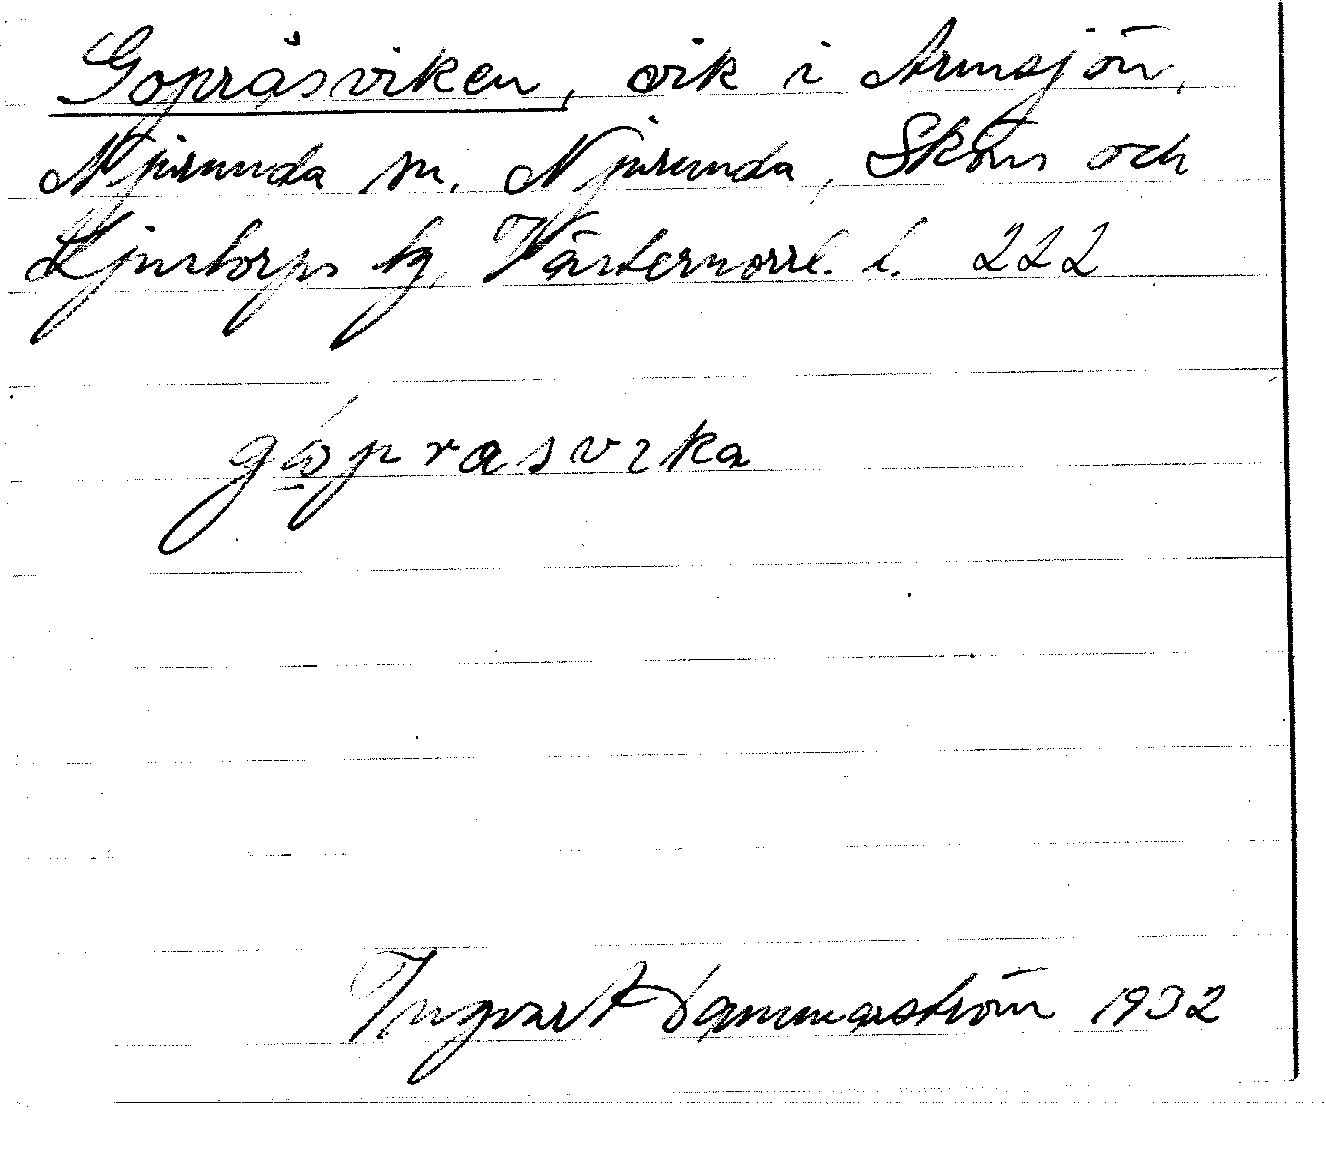 Gopråsviken, vik i Armsjön,
Njurunda sn. Njurunda, Sköns och
Ljustorps tg, Västernorrl. l. 222
gåprasvika
Ingvar Hammarström 1932